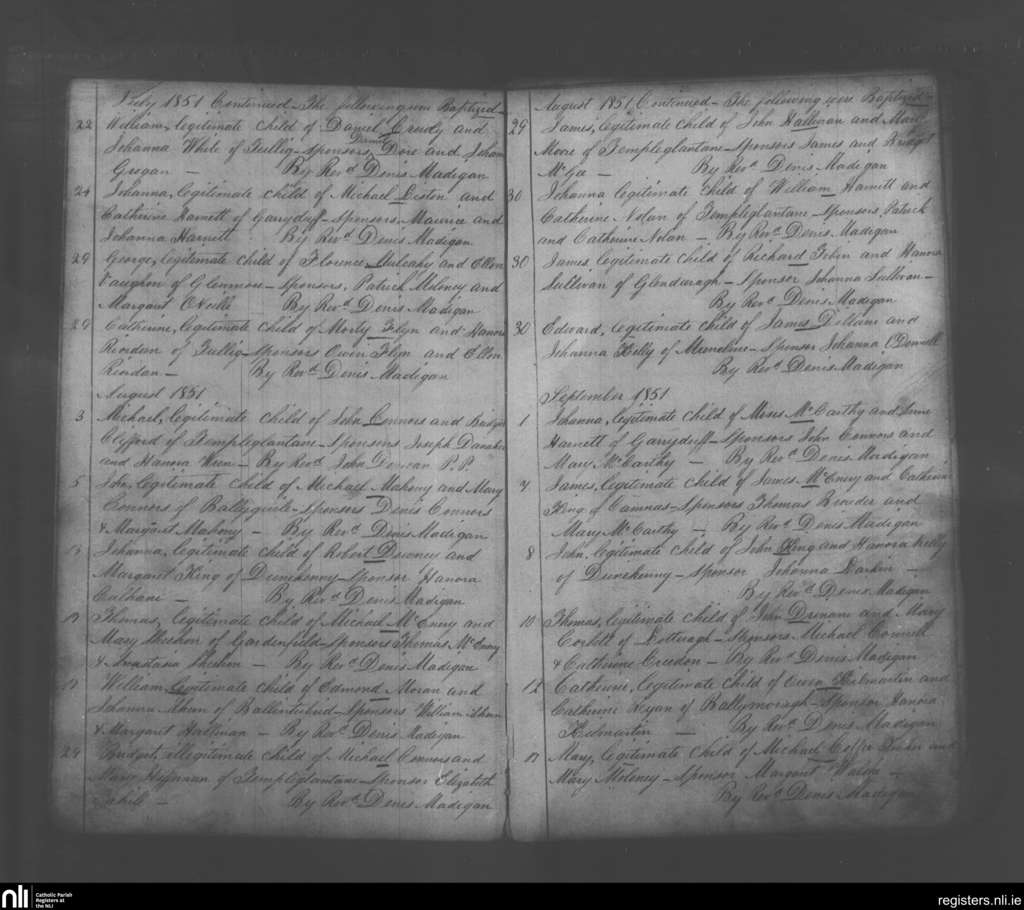 July 1851 Continued - The following were Baptized -
22 William, legitimate child of Daniel Creedy and
Johanna White of Tullig - Sponsors, Daniel Dore and Johan
Grogan - By Revd Denis Madigan
24 Johanna, legitimate child of Michael Liston and
Catherine Harnett of Garryduff - Sponsors - Maurice and
Johanna Harnett By Revd Denis Madigan
29 George, legitimate child of Florence Mulcahy and Ellen
Vaughan of Glenmore - Sponsors, Patrick Moloney and
Margaret O'Kelle By Revd Denis Madigan
29 Catherine, legitimate child of Morty Flyn and Hanora
Riordan of Tullig - Sponsors Owen Flyn and Ellen
Riordan - By Revd Denis Madigan
August 1851
3 Michael, legitimate child of John Connors and Bridget
Clifford of Templeglantane - Sponsors Joseph Danaher
and Hanora - By Revd John P.P.
5 John, legitimate child of Michael Mahony and Mary
Connors of - Sponsors Denis Connors
& Margaret Mahony - By Revd Denis Madigan
13 Johanna, legitimate child of Robert Downey and
Margaret King of - Sponsor Hanora
Cathane - By Revd Denis Madigan
17 Thomas, legitimate child of Michael McEnery and
Mary of Gardenfield - Sponsors Thomas McEnery
& Anastasia Sheehan - By Revd Denis Madigan
17 William, legitimate child of Edmond Moran and
Johanna Ahern of - Sponsors William Ahern
& Margaret Hallinan - By Revd Denis Madigan
29 Bridget, illegitimate child of Michael Connors and
Mary Heffernan of Templeglantane - Sponsor Elizabeth
Cahill - By Revd Denis Madigan
August 1851 Continued - The following were Baptized -
29 James, legitimate child of John Hallinan and Mary
Moore of Templeglantane - Sponsors James and Bridget
McGee - By Revd Denis Madigan
30 Johanna legitimate child of William Harnett and
Catherine Nolan of Templeglantane - Sponsors, Patrick
and Catherine Nolan - By Revd Denis Madigan
30 James, legitimate child of Richard and Hanora
Sullivan of Glendarragh - Sponsor Johanna Sullivan -
By Revd Denis Madigan
30 Edward, legitimate child of James Dillane and
Johanna Kelly of - Sponsor Johanna O'Donnell
By Revd Denis Madigan
September 1851
1 Johanna, legitimate child of Moses McCarthy and Anne
Harnett of Garryduff - Sponsors John Connors and
Mary McCarthy - By Revd Denis Madigan
7 James, legitimate child of James McEnery and Catherine
King of Camnas - Sponsors Thomas and
Mary McCarthy - By Revd Denis Madigan
8 John, legitimate child of John King and Hanora Kelly
of - Sponsor Johanna Larkin -
By Revd Denis Madigan
10 Thomas, legitimate child of John and Mary
Corbett of - Sponsors Michael Connell
& Catherine Creedon - By Revd Denis Madigan
12 Catherine, legitimate child of Owen Kilmartin and
Catherine Ryan of Ballymoragh - Sponsor Hanora
Kilmartin - By Revd Denis Madigan
17 Mary, legitimate child of Michael and
Mary Moloney - Sponsor Margaret Walsh -
By Revd Denis Madigan
nli
Catholic Parish
Registers at
the NLI
registers.nli.ie